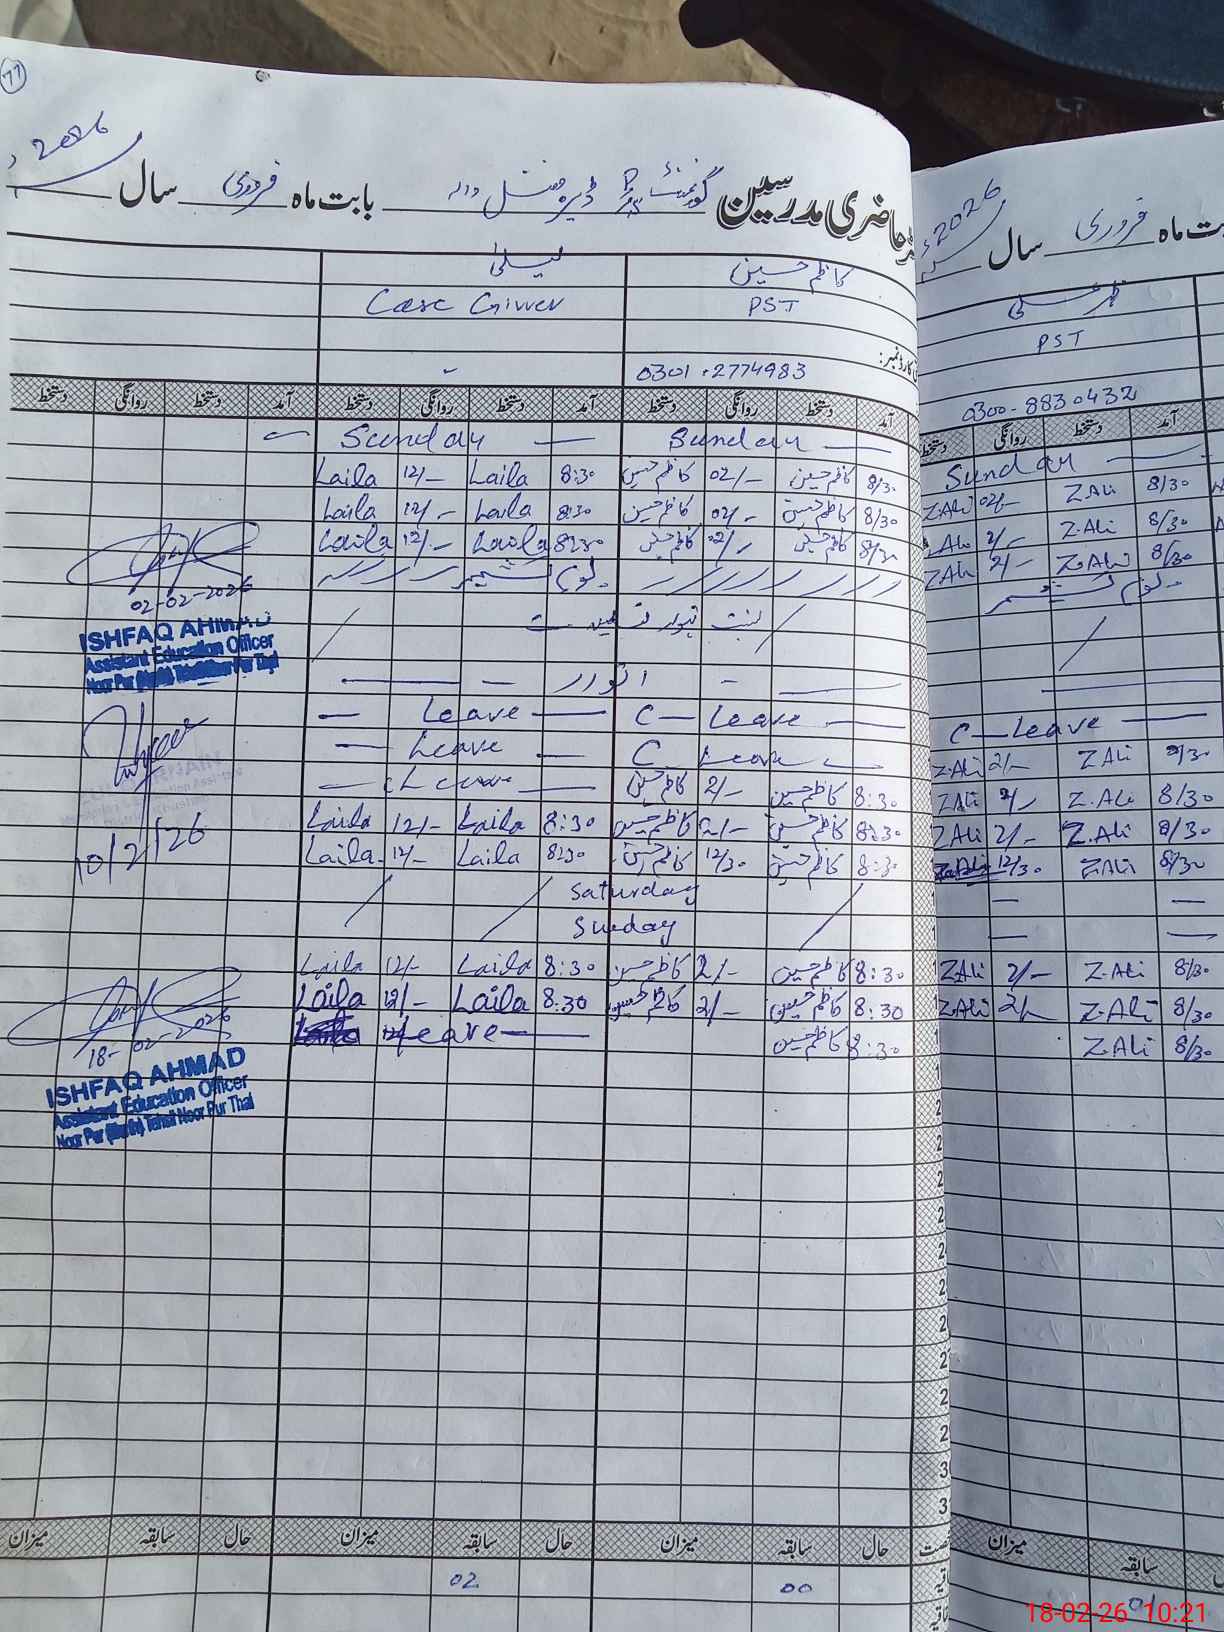 77
حاضری مدرسین گورنمنٹ ڈیرہ فضل والہ بابت ماہ فروری سال 2026
بابت ماہ فروری سال 2026ء
لیلیٰ کاظم حسین
Care Giver PST
PST
0301-2774983
0300-8830432
آمد دستخط روانگی دستخط آمد دستخط روانگی دستخط آمد دستخط روانگی دستخط
آمد دستخط روانگی دستخط
Sunday Sunday
Sunday
Laila 12/- Laila 8:30 کاظم حسین 02/- کاظم حسین 8/30
Z.Ali 02/- Z.Ali 8/30
Laila 12/- Laila 8:30 کاظم حسین 02/- کاظم حسین 8/30
Ali 2/- Z.Ali 8/30
Laila 12/- Laila 8:30 کاظم حسین 02/- کاظم حسین 8/30
ZAli 2/- Z.Ali 8/30
یوم کشمیر
یوم کشمیر
02-02-2026
ISHFAQ AHMAD
Assistant Education Officer
Noor Pur (North) Tehsil Noor Pur Thal
اتوار
Leave C-Leave
C-Leave
Leave C-Leave
Z.Ali 2/- Z.Ali 8/30
Leave کاظم حسین 2/- کاظم حسین 8:30
ZAli 2/- Z.Ali 8/30
Laila 12/- Laila 8:30 کاظم حسین 2/- کاظم حسین 8:30
ZAli 2/- Z.Ali 8/30
10/2/26
Laila 12/- Laila 8:30 کاظم حسین 12/30 کاظم حسین 8:30
Z.Ali 12/30 ZAli 8/30
Saturday
Sunday
Laila 12/- Laila 8:30 کاظم حسین 2/- کاظم حسین 8:30
ZAli 2/- Z.Ali 8/30
Laila 12/- Laila 8:30 کاظم حسین 2/- کاظم حسین 8:30
Z.Ali 2/- Z.Ali 8/30
Leave کاظم حسین 8:30
Z.Ali 8/30
18-02-2026
ISHFAQ AHMAD
Assistant Education Officer
Noor Pur (North) Tehsil Noor Pur Thal
حال سابقہ میزان حال سابقہ میزان حال سابقہ میزان
سابقہ میزان
02 00
01
18-02-26 10:21